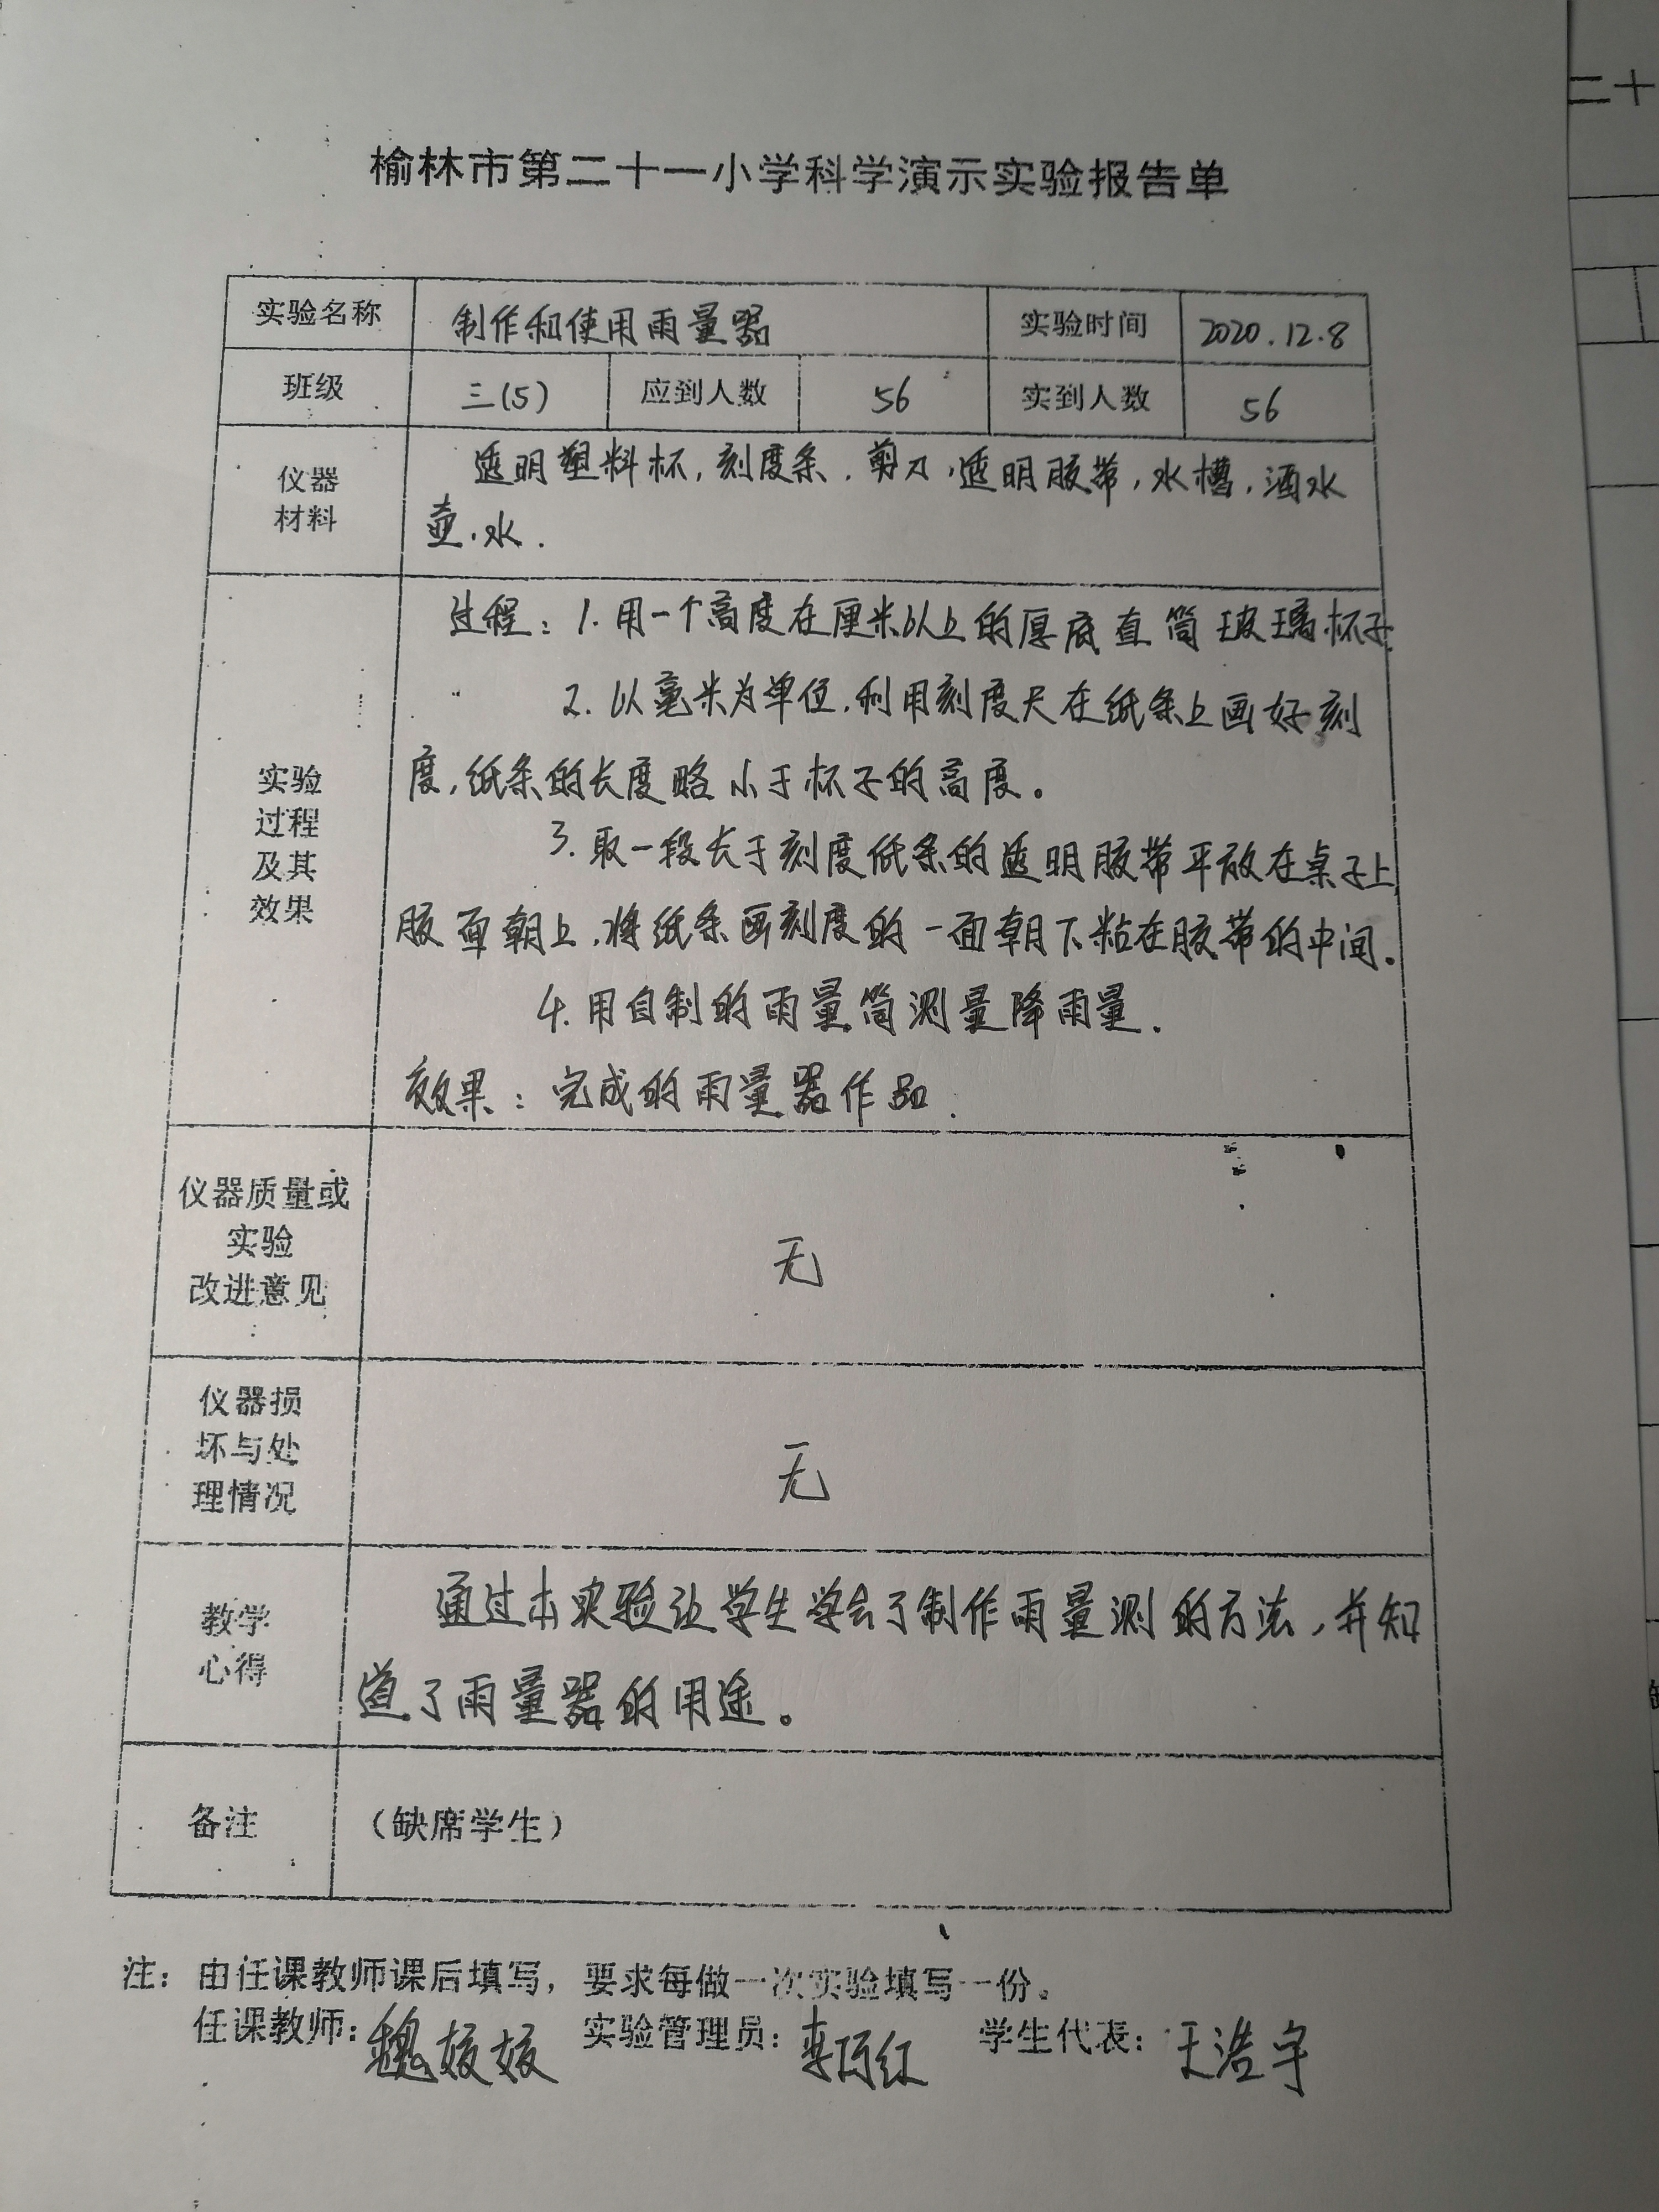 榆林市第二十一小学科学演示实验报告单
实验名称 制作和使用雨量器 实验时间 2020.12.8
班级 三(5) 应到人数 56 实到人数 56
仪器
材料
透明塑料杯,刻度条,剪刀,透明胶带,水槽,洒水
壶,水.
实验
过程
及其
效果
过程:1.用一个高度在厘米以上的厚底直筒玻璃杯子.
2.以毫米为单位,利用刻度尺在纸条上画好刻
度,纸条的长度略小于杯子的高度。
3.取一段长于刻度纸条的透明胶带平放在桌子上
胶面朝上,将纸条画刻度的一面朝下粘在胶带的中间。
4.用自制的雨量筒测量降雨量.
效果:完成的雨量器作品.
仪器质量或
实验
改进意见
无
仪器损
坏与处
理情况
无
教学
心得
通过本实验让学生学会了制作雨量测的方法,并知
道了雨量器的用途。
备注 (缺席学生)
注:由任课教师课后填写,要求每做一次实验填写一份。
任课教师:魏媛媛 实验管理员:李巧红 学生代表:王浩宇
二十